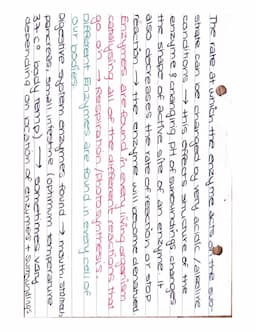 The rate at which the enzyme acts on the sub-
strate can be changed by very acidic / alkaline
conditions → this effects structure of the
enzyme & changing pH of surroundings changes
the shape of active site of an enzyme. It
also decreases the rate of reaction or stop
reaction → the enzyme will become denatured
Enzymes are found in every living organism
catalysing all of the different reactions that
go on → Respiration / photosynthesis
Different Enzymes are found in every cell of
our bodies
Digestive system enzymes found → mouth stomach
pancreas small intestine (optimum temperature
37°C body temp) → sometimes vary
depending on location of enzymes surroundings